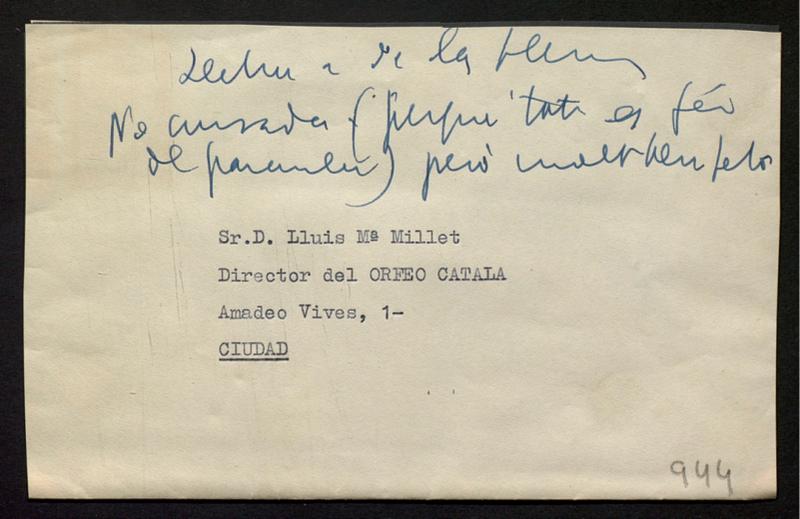 de la
No cursada (perquè tot es féu
de paraula) però molt ben feta
Sr.D. Lluis Mª Millet
Director del ORFEO CATALA
Amadeo Vives, 1-
CIUDAD
944